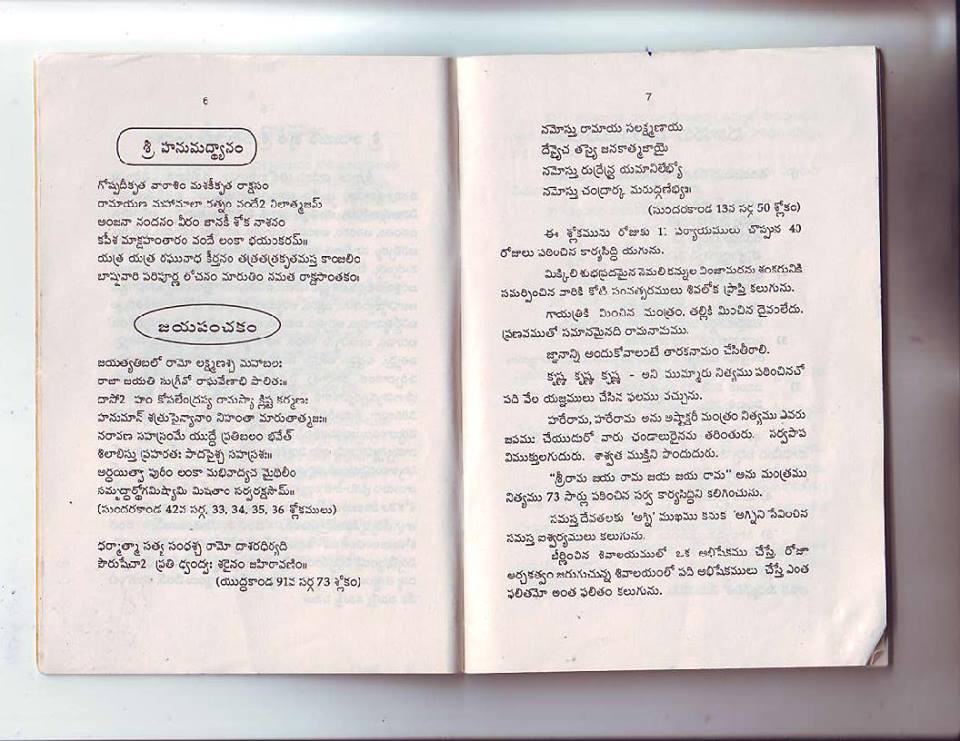 6
శ్రీ హనుమద్ధ్యానం
గోష్పదీకృత వారాశిం మశకీకృత రాక్షసం
రామాయణ మహామాలా రత్నం వందే2 నిలాత్మజమ్
అంజనా నందనం వీరం జానకీ శోక నాశనం
కపీశ మాక్షహంతారం వందే లంకా భయంకరమ్॥
యత్ర యత్ర రఘునాధ కీర్తనం తత్రతత్రకృతమస్త కాంజలిం
బాష్పవారి పరిపూర్ణ లోచనం మారుతిం నమత రాక్షసాంతకం॥
జయపంచకం
జయత్యతిబలో రామో లక్ష్మణశ్చ మహాబలః
రాజా జయతి సుగ్రీవో రాఘవేణాభి పాలితః॥
దాసో2 హం కోసలేంద్రస్య రామస్యా క్లిష్ట కర్మణః
హనుమాన్ శత్రుసైన్యానాం నిహంతా మారుతాత్మజః॥
నరావణ సహస్రంమే యుద్ధే ప్రతిబలం భవేత్
శిలాభిస్తు ప్రహరతః పాదపైశ్చ సహస్రశః॥
అర్దయిత్వా పురీం లంకా మభివాద్యచ మైథిలీం
సమృద్ధార్థోగమిష్యామి మిషతాం సర్వరక్షసామ్॥
(సుందరకాండ 42వ సర్గ, 33, 34, 35, 36 శ్లోకములు)
ధర్మాత్మా సత్య సంధశ్చ రామో దాశరధిర్యది
పౌరుషేచా2 ప్రతి ద్వంద్వః శరైనం జహిరావణిం॥
(యుద్ధకాండ 91వ సర్గ 73 శ్లోకం)
7
నమోస్తు రామాయ సలక్ష్మణాయ
దేవ్యైచ తస్యై జనకాత్మజాయై
నమోస్తు రుద్రేన్ద్ర యమానిలేభ్యో
నమోస్తు చంద్రార్క మరుద్గణేభ్యః॥
(సుందరకాండ 13వ సర్గ 50 శ్లోకం)
ఈ శ్లోకమును రోజుకు 11 పర్యాయములు చొప్పున 40
రోజులు పఠించిన కార్యసిద్ధి యగును.
మిక్కిలి శుభప్రదమైన నెమలి కన్నుల వింజామరను శంకరునికి
సమర్పించిన వారికి కోటి సంవత్సరములు శివలోక ప్రాప్తి కలుగును.
గాయత్రికి మించిన మంత్రం, తల్లికి మించిన దైవంలేదు.
ప్రణవముతో సమానమైనది రామనామము.
జ్ఞానాన్ని అందుకోవాలంటే తారకనామం చేసితీరాలి.
కృష్ణ కృష్ణ కృష్ణ - అని ముమ్మారు నిత్యము పఠించినచో
పది వేల యజ్ఞములు చేసిన ఫలము వచ్చును.
హరేరామ, హరేరామ అను అష్టాక్షరీ మంత్రం నిత్యము ఎవరు
జపము చేయుదురో వారు చండాలురైనను తరింతురు. సర్వపాప
విముక్తులగుదురు. శాశ్వత ముక్తిని పొందుదురు.
"శ్రీరామ జయ రామ జయ జయ రామ" అను మంత్రము
నిత్యము 73 సార్లు పఠించిన సర్వ కార్యసిద్ధిని కలిగించును.
సమస్త దేవతలకు 'అగ్ని' ముఖము కనుక 'అగ్నిని సేవించిన
సమస్త ఐశ్వర్యములు కలుగును.
జీర్ణించిన శివాలయములో ఒక అభిషేకము చేస్తే, రోజూ
అర్చకత్వం జరుగుచున్న శివాలయంలో పది అభిషేకములు చేస్తే ఎంత
ఫలితమో అంత ఫలితం కలుగును.